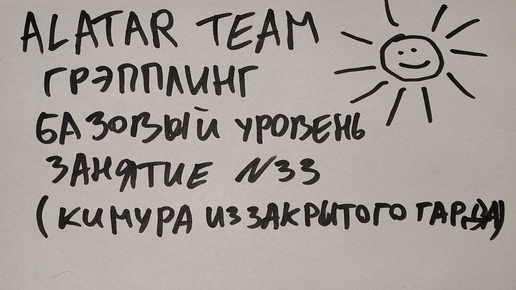 ALATAR TEAM
ГРЭППЛИНГ
БАЗОВЫЙ УРОВЕНЬ
ЗАНЯТИЕ №33
(КИМУРА ИЗ ЗАКРЫТОГО ГАРДА)